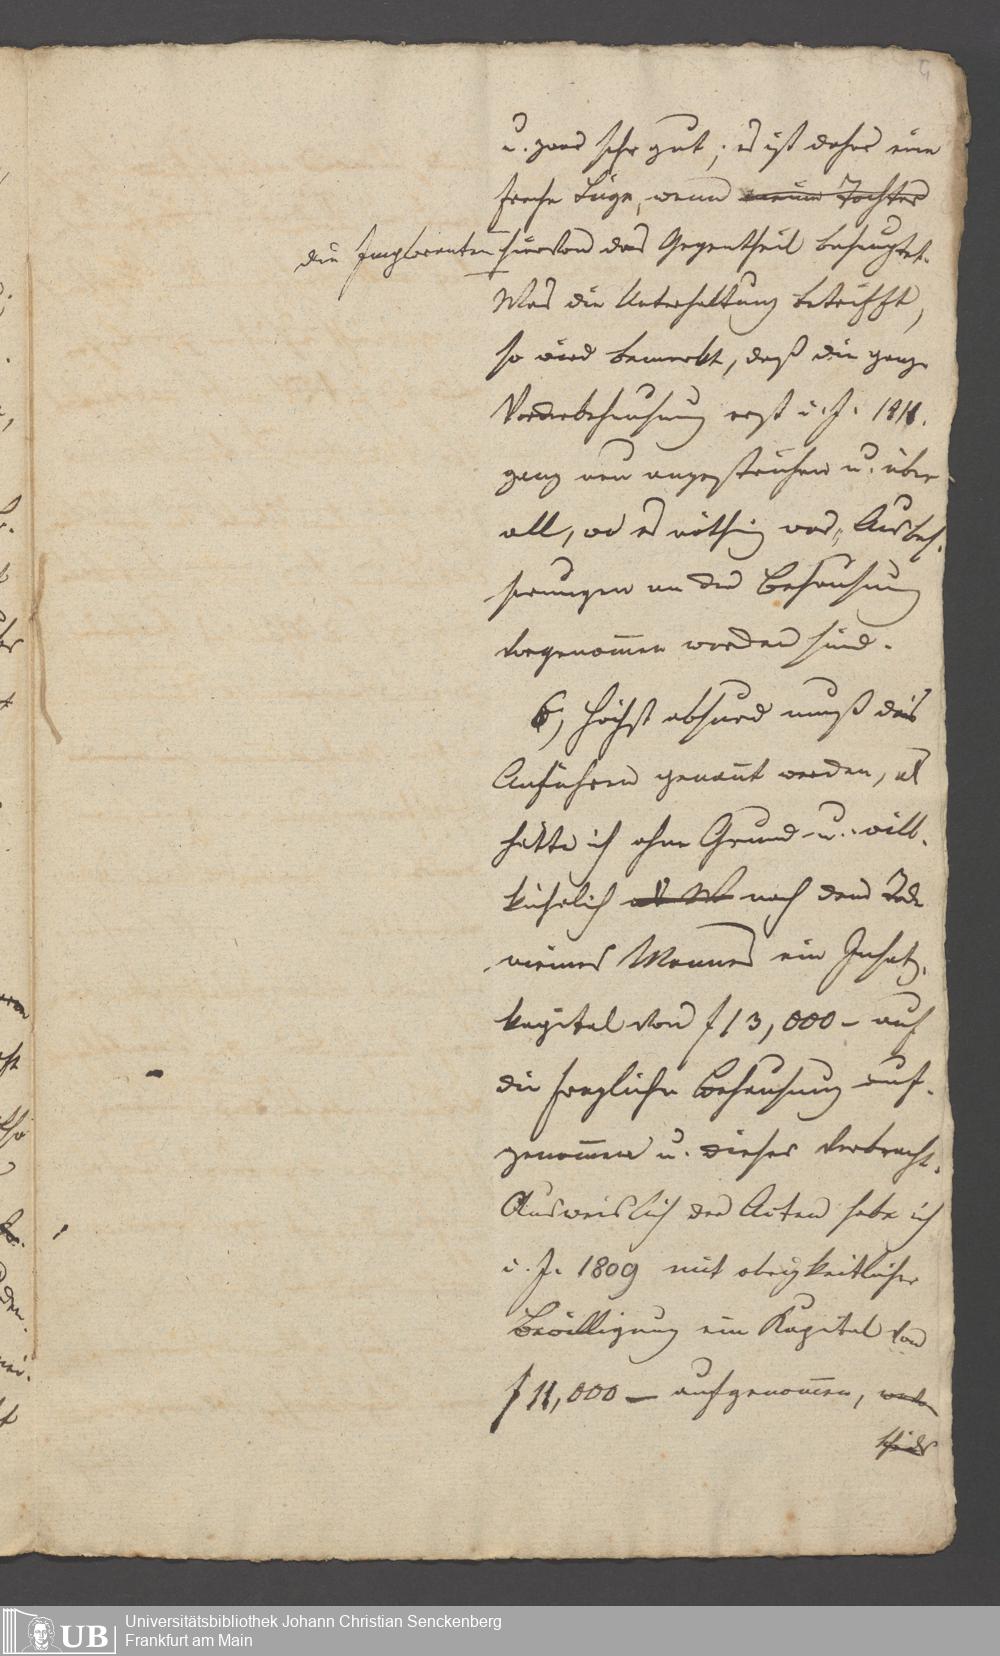 u. zwar sehr gut; es ist daher eine
freche Lüge, wenn meine Tochter
die Implorantin hiervon das Gegentheil behauptet.
Was die Unterhaltung betrifft,
so wird bemerkt, daß die ganze
Vorderbehausung erst i. J. 1811.
ganz neu angestrichen u. über
all, wo es nöthig war, Ausbes-
serungen an der Behausung
vorgenommen worden sind.
6, Höchst absurd muß das
Anführen genannt werden, als
hätte ich ohne Grund u. will-
kührlich nach dem Tode
meines Mannes ein Insatz-
kapital von f 13,000 – auf
die fragliche Behausung auf-
genommen u. dieses verbracht.
Ausweislich der Acten habe ich
i. J. 1809 mit obrigkeitlicher
Bewilligung ein Kapital von
f 11,000 – aufgenommen,
Universitätsbibliothek Johann Christian Senckenberg
Frankfurt am Main
UB